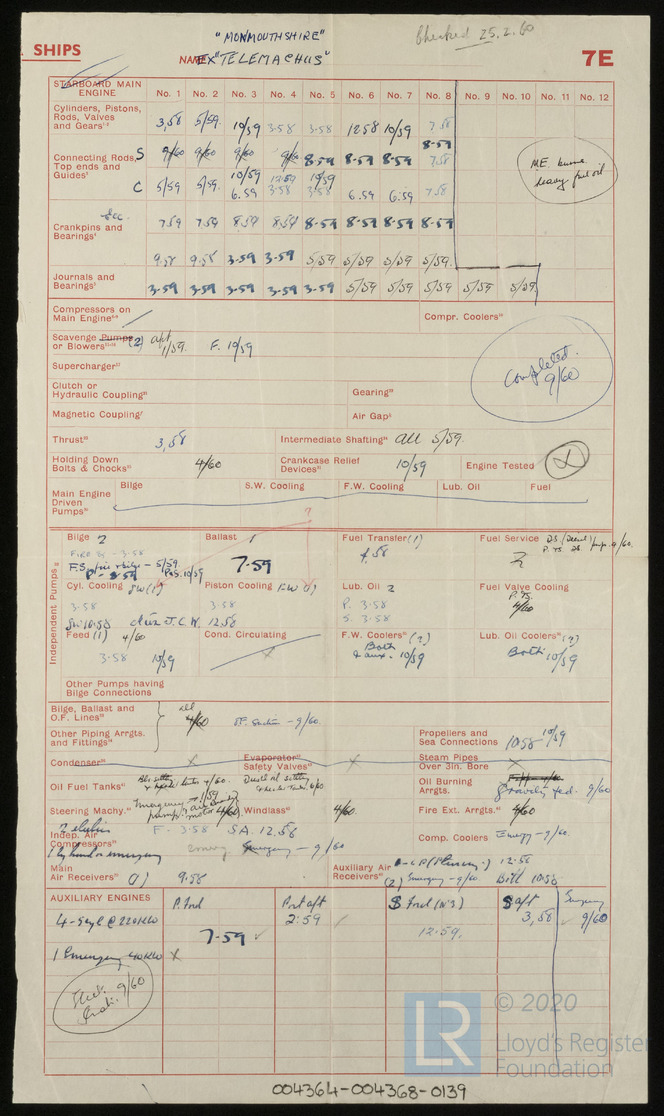 "MONMOUTHSHIRE"
Checked 25.2.60
SHIPS
NAME EX "TELEMACHUS"
7E
STARBOARD MAIN ENGINE No. 1 No. 2 No. 3 No. 4 No. 5 No. 6 No. 7 No. 8 No. 9 No. 10 No. 11 No. 12
Cylinders, Pistons, Rods, Valves and Gears 3,58 5/59. 10/59 3-58 3-58 1258 10/59 7.58
Connecting Rods, Top ends and Guides
S 9/60 9/60 9/60 9/60 8-59 8-59 8-59 8-59 7.58
C 5/59 5/59. 10/59 6.59 12.59 3-58 10/59 3-58 6.59 6.59 7.58
M.E. burns heavy fuel oil
Crankpins and Bearings
7.59 7.59 8.59 8.59 8-59 8-59 8-59 8-59
9.58 9.58 3-59 3-59 5/59 5/59 5/59 5/59.
Journals and Bearings 3-59 3-59 3-59 3-59 3-59 5/59 5/59 5/59 5/59 5/59
Compressors on Main Engine
Compr. Coolers
Scavenge Pumps or Blowers (2) aft 1/59. F. 10/59
Supercharger
Completed. 9/60
Clutch or Hydraulic Coupling
Gearing
Magnetic Coupling
Air Gap
Thrust 3,58
Intermediate Shafting all 5/59.
Holding Down Bolts & Chocks 4/60
Crankcase Relief Devices 10/59
Engine Tested X
Main Engine Driven Pumps
Bilge S.W. Cooling F.W. Cooling Lub. Oil Fuel
?
Independent Pumps
Bilge 2 Ballast 1 Fuel Transfer (1) Fuel Service
7.59
4.58
Cyl. Cooling SW (1) Piston Cooling FW (1) Lub. Oil 2 Fuel Valve Cooling
3-58 3-58 P. 3-58 4/60
SW 10.58 Aux J.C.W. 12.58 S. 3-58
Feed (1) 4/60 Cond. Circulating F.W. Coolers (2) Lub. Oil Coolers (2)
3-58 10/59 X Both & aux. 10/59 Both 10/59
Other Pumps having Bilge Connections
Bilge, Ballast and O.F. Lines all 4/60 OF. Suction - 9/60.
Other Piping Arrgts. and Fittings
Propellers and Sea Connections 10.58 10/59
Condenser X
Evaporator Safety Valves X
Steam Pipes Over 3in. Bore X
Oil Fuel Tanks
Oil Burning Arrgts. Gravity fed. 9/60
Steering Machy.
Windlass 4/60.
Fire Ext. Arrgts. 4/60
Indep. Air Compressors 2 electric F. 3.58 SA. 12.58
1 by hand or emergency Emergy - 9/60
Comp. Coolers Emergy - 9/60.
Main Air Receivers (1) 9.58
Auxiliary Air Receivers (2) Emergency - 9/60 12.58 Both 10.58
AUXILIARY ENGINES P. Ford Port aft S Ford (No 3) S aft Emergency
4-5cyl @ 220KW 2:59 3,58 9/60
7.59
12.59.
1 Emergency 40KW X
Elect. Insln. 9/60
LR
© 2020
Lloyd's Register
Foundation
004364-004368-0139